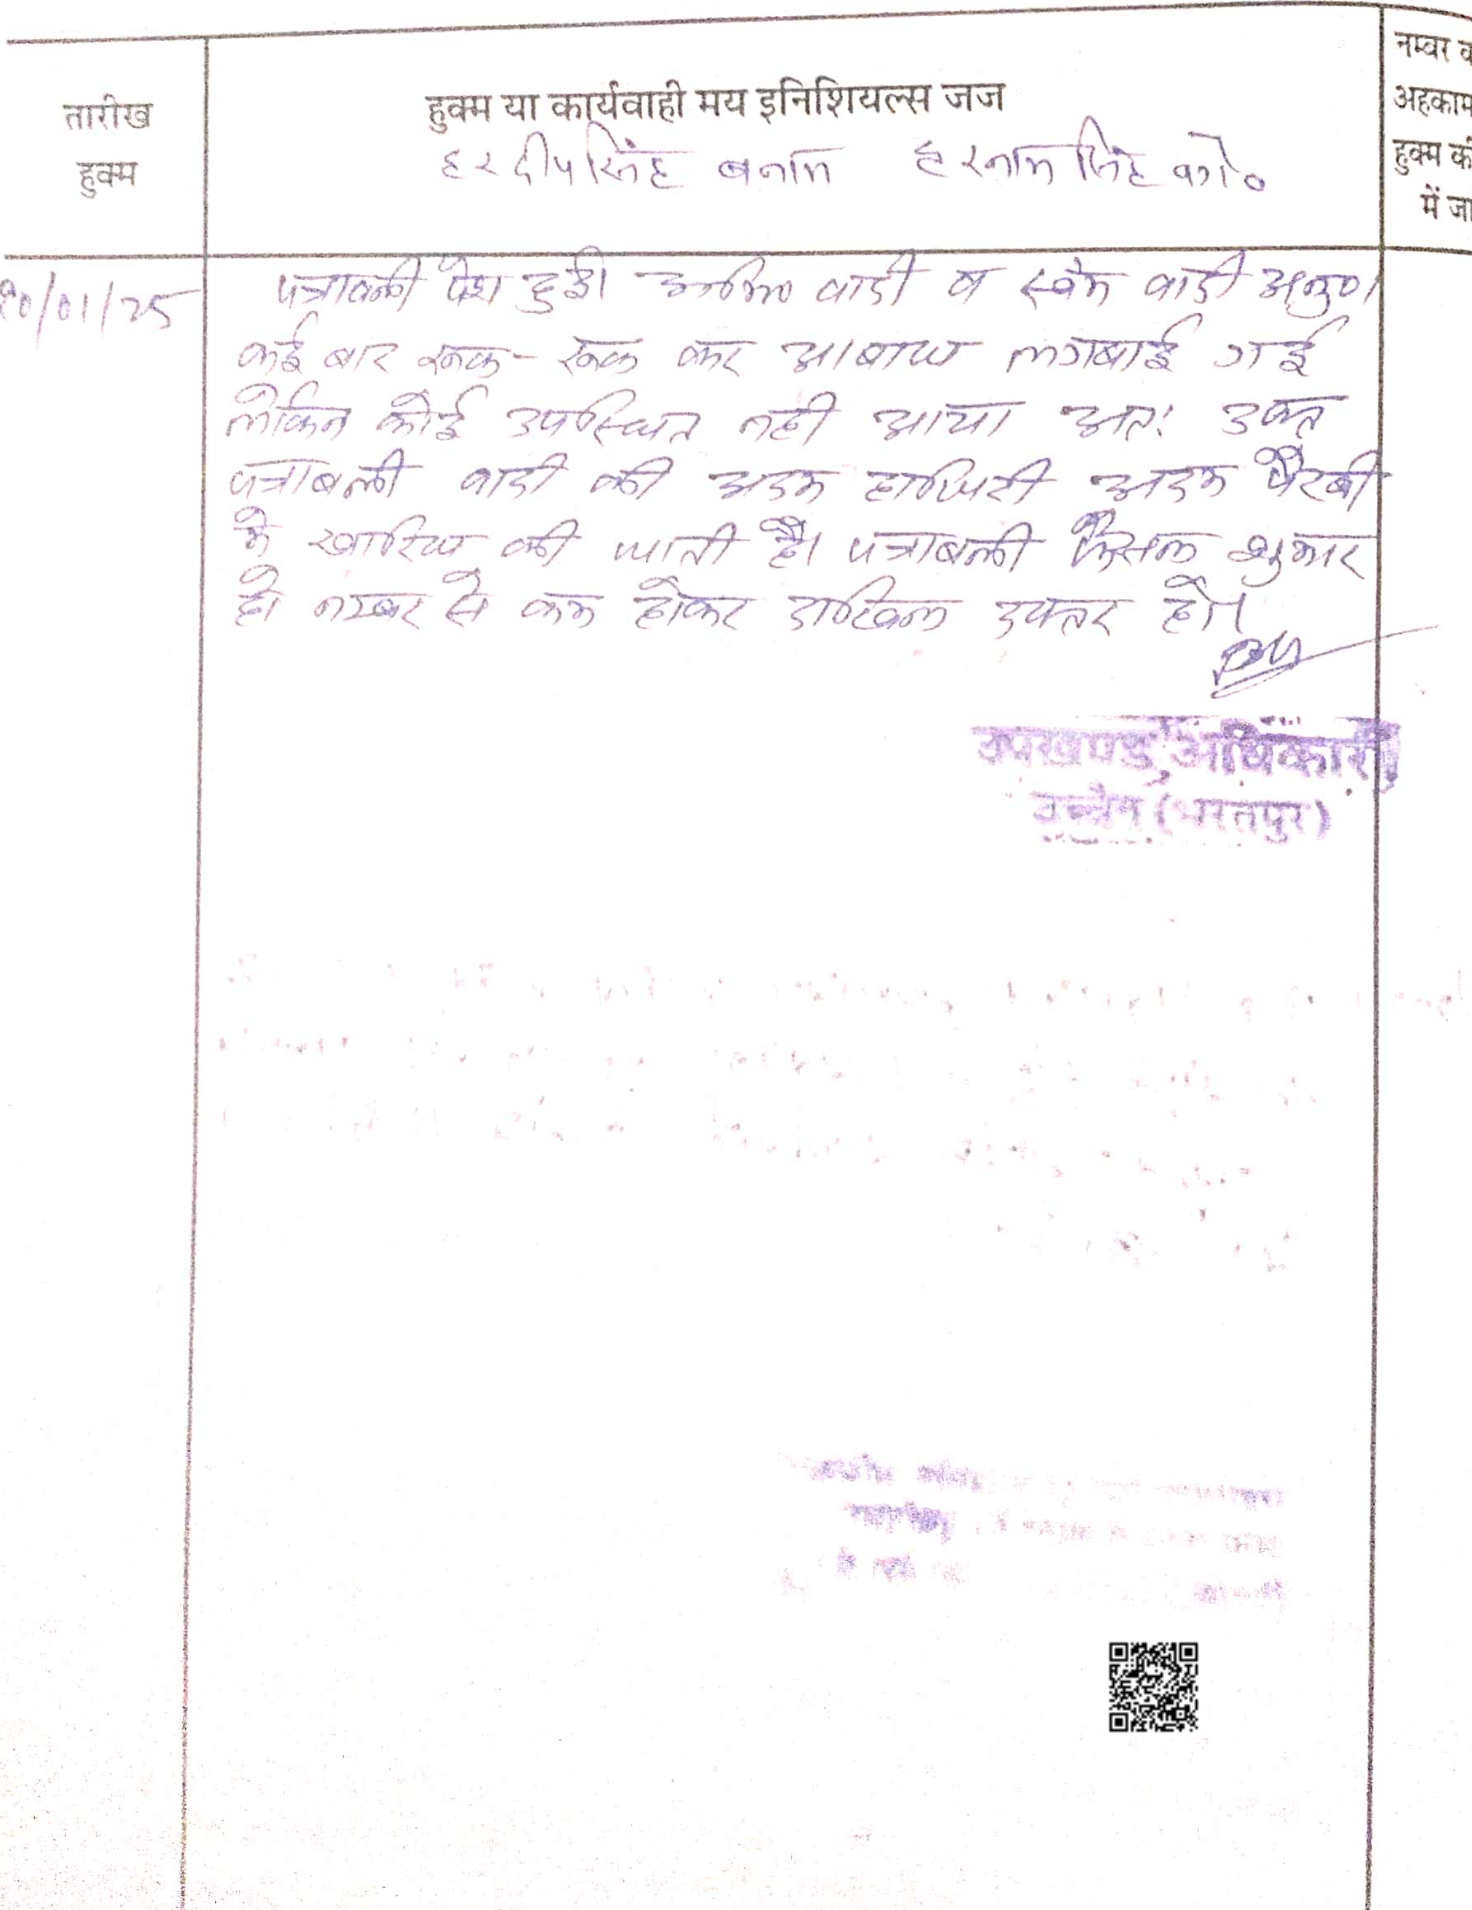 तारीख
हुक्म
हुक्म या कार्यवाही मय इनिशियल्स जज
हरदीप सिंह बनाम हरनाम सिंह वगै०
नम्बर व
अहकाम
हुक्म की
में जा
20/01/25
पत्रावली पेश हुई। अभि० वादी व स्वंम वादी अनु०।
कई बार रूक-रूक कर आबाज लगबाई गई
लेकिन कोई उपस्थित नही आया अत: उक्त
पत्राबली वादी की अदम हाजिरी अदम पैरबी
मे खारिज की जाती है। पत्राबली फैसल शुमार
हो नम्बर से कम होकर दाखिल दफ्तर हो।
उपखण्ड अधिकारी
उच्चैन (भरतपुर)